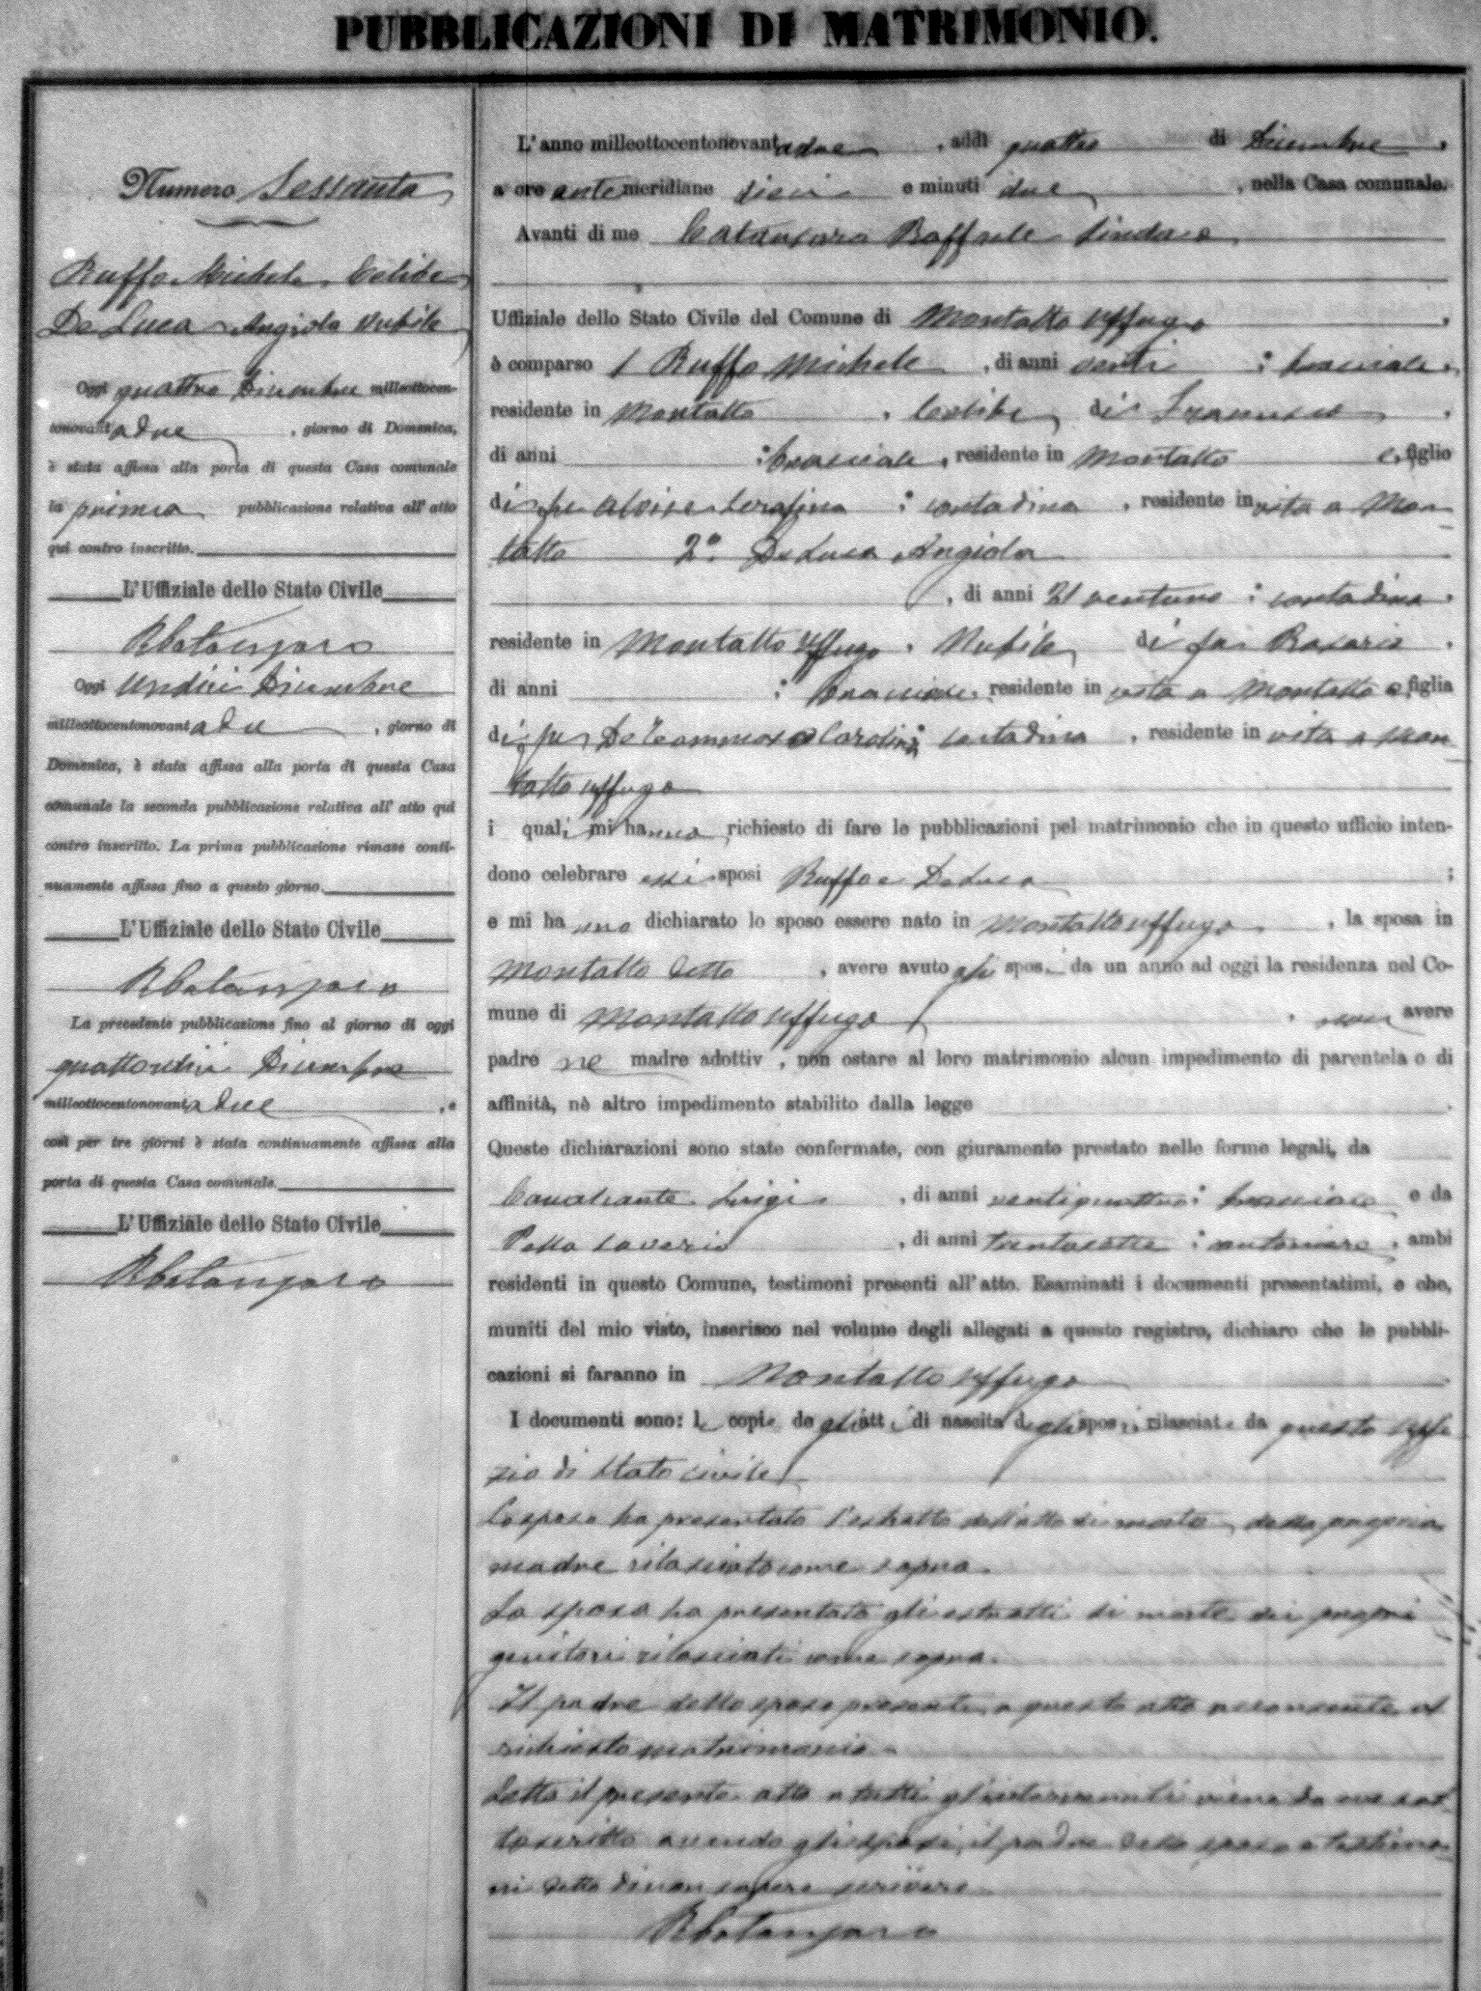 PUBBLICAZIONI DI MATRIMONIO.
Numero Sessanta
Ruffo Michele Celibe
De Luca Angiola Nubile
Oggi quattro Dicembre milleottocen-
tonovantadue, giorno di Domenica,
è stata affissa alla porta di questa Casa comunale
la prima pubblicazione relativa all'atto
qui contro inscritto.
L'Uffiziale dello Stato Civile
RCatanzaro
Oggi undici Dicembre
milleottocentonovantadue, giorno di
Domenica, è stata affissa alla porta di questa Casa
comunale la seconda pubblicazione relativa all'atto qui
contro inscritto. La prima pubblicazione rimase conti-
nuamente affissa fino a questo giorno.
L'Uffiziale dello Stato Civile
RCatanzaro
La precedente pubblicazione fino al giorno di oggi
quattordici Dicembre
milleottocentonovantadue, e
così per tre giorni è stata continuamente affissa alla
porta di questa Casa comunale.
L'Uffiziale dello Stato Civile
RCatanzaro
L'anno milleottocentonovantadue, addì quattro di Dicembre,
a ore antemeridiane dieci e minuti due, nella Casa comunale.
Avanti di me Catanzaro Raffaele Sindaco
Uffiziale dello Stato Civile del Comune di Montalto Uffugo,
è comparso 1 Ruffo Michele, di anni venti; bracciale,
residente in Montalto, Celibe, di Francesco,
di anni ; bracciale, residente in Montalto e, figlio
di fu Aloise Serafina; contadina, residente in vita a Mon
talto 2º. De Luca Angiola
, di anni 21 ventuno; contadina,
residente in Montalto Uffugo, Nubile, di fu Rosario,
di anni ; bracciale, residente in vita a Montalto e, figlia
di fu De Tommaso Carolina; contadina, residente in vita a Mon
talto Uffugo
i quali mi hanno richiesto di fare le pubblicazioni pel matrimonio che in questo ufficio inten-
dono celebrare essi sposi Ruffo e De Luca;
e mi hanno dichiarato lo sposo essere nato in Montalto Uffugo, la sposa in
Montalto detto, avere avuto gli sposi da un anno ad oggi la residenza nel Co-
mune di Montalto Uffugo, non avere
padre ne madre adottiv, non ostare al loro matrimonio alcun impedimento di parentela o di
affinità, nè altro impedimento stabilito dalla legge.
Queste dichiarazioni sono state confermate, con giuramento prestato nelle forme legali, da
Cavalcante Luigi, di anni ventiquattro; bracciale e da
Saverio, di anni trentasette;, ambi
residenti in questo Comune, testimoni presenti all'atto. Esaminati i documenti presentatimi, e che,
muniti del mio visto, inserisco nel volume degli allegati a questo registro, dichiaro che le pubbli-
cazioni si faranno in Montalto Uffugo
I documenti sono: le copie degli atti di nascita degli sposi, rilasciate da questo Uffi
zio di Stato civile
Lo sposo ha presentato l'estratto dell'atto di morte della propria
madre rilasciato come sopra.
La sposa ha presentato gli estratti di morte dei propri
genitori rilasciati come sopra.
Il padre dello sposo presente a questo atto acconsente al
richiesto matrimonio.
Letto il presente atto a tutti gl'intervenuti viene da me sot
toscritto avendo gli sposi, il padre dello sposo e testimo
ni detto di non sapere scrivere
RCatanzaro